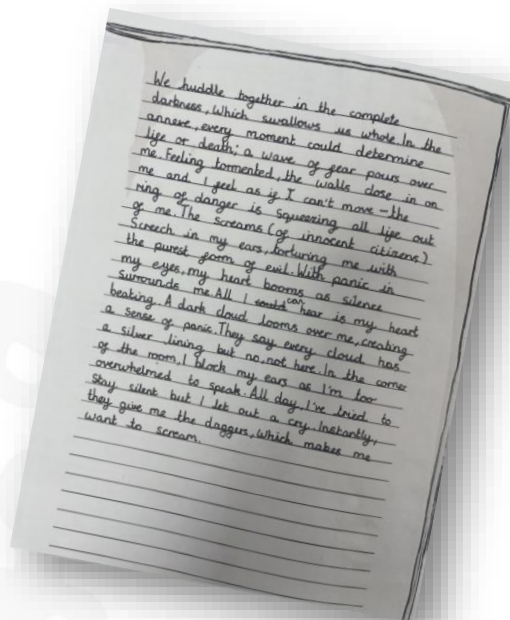 We huddle together in the complete
darkness, which swallows us whole. In the
annexe, every moment could determine
life or death; a wave of fear pours over
me. Feeling tormented, the walls close in on
me and I feel as if I can't move – the
ring of danger is squeezing all life out
of me. The screams (of innocent citizens)
screech in my ears, torturing me with
the purest form of evil. With panic in
my eyes, my heart booms as silence
surrounds me. All I can hear is my heart
beating. A dark cloud looms over me, creating
a sense of panic. They say every cloud has
a silver lining but no, not here. In the corner
of the room, I block my ears as I'm too
overwhelmed to speak. All day, I've tried to
stay silent but I let out a cry. Instantly,
they give me the daggers, which makes me
want to scream.